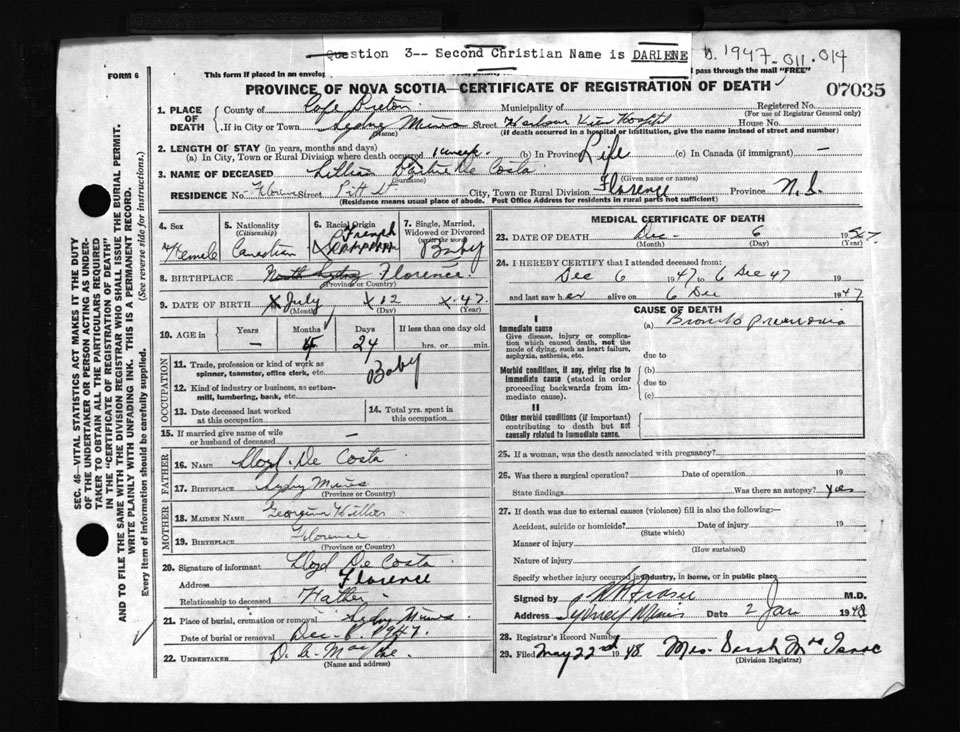 Question 3-- Second Christian Name is DARLENE b. 1947-011-014
FORM 6
This form if placed in an envelop pass through the mail "FREE"
PROVINCE OF NOVA SCOTIA—CERTIFICATE OF REGISTRATION OF DEATH 07035
1. PLACE OF DEATH County of Cape Breton Municipality of Registered No.
(For use of Registrar General only)
If in City or Town Sydney Mines Street Harbour View Hospital House No.
(Name) (If death occurred in a hospital or institution, give the name instead of street and number)
2. LENGTH OF STAY (in years, months and days)
(a) In City, Town or Rural Division where death occurred 1 week (b) In Province Life (c) In Canada (if immigrant) —
3. NAME OF DECEASED Lillian De Costa
(Surname) (Given name or names)
RESIDENCE No. Florence Street Pitt St City, Town or Rural Division Florence Province N.S.
(Residence means usual place of abode. Post Office Address for residents in rural parts not sufficient)
4. Sex Female
5. Nationality (Citizenship) Canadian
6. Racial Origin French
7. Single, Married, Widowed or Divorced (write the word) Baby
8. BIRTHPLACE North Sydney Florence
(Province or Country)
9. DATE OF BIRTH X July X 12 X-47.
(Month) (Day) (Year)
10. AGE in Years — Months 4 Days 24 If less than one day old hrs. or min.
OCCUPATION
11. Trade, profession or kind of work as spinner, teamster, office clerk, etc. Baby
12. Kind of industry or business, as cotton-mill, lumbering, bank, etc.
13. Date deceased last worked at this occupation
14. Total yrs. spent in this occupation
15. If married give name of wife or husband of deceased —
FATHER
16. NAME Lloyd De Costa
17. BIRTHPLACE Sydney Mines
(Province or Country)
MOTHER
18. MAIDEN NAME Georgina Hillier
19. BIRTHPLACE Florence
(Province or Country)
20. Signature of informant Lloyd De Costa
Address Florence
Relationship to deceased Father
21. Place of burial, cremation or removal Sydney Mines
Date of burial or removal Dec-8-1947.
22. UNDERTAKER D. A.
(Name and address)
MEDICAL CERTIFICATE OF DEATH
23. DATE OF DEATH Dec- 6 1947.
(Month) (Day) (Year)
24. I HEREBY CERTIFY that I attended deceased from:
Dec 6 1947 to 6 Dec 47 19
and last saw her alive on 6 Dec 1947
CAUSE OF DEATH
I
Immediate cause (a) Broncho pneumonia
Give disease, injury or complication which caused death, not the mode of dying, such as heart failure, asphyxia, asthenia, etc. due to
Morbid conditions, if any, giving rise to immediate cause (stated in order proceeding backwards from immediate cause). (b) due to (c)
II
Other morbid conditions (if important) contributing to death but not causally related to immediate cause.
25. If a woman, was the death associated with pregnancy?
26. Was there a surgical operation? Date of operation 19
State findings Was there an autopsy? yes
27. If death was due to external causes (violence) fill in also the following:—
Accident, suicide or homicide? Date of injury 19
(State which)
Manner of injury
(How sustained)
Nature of injury
Specify whether injury occurred in industry, in home, or in public place
Signed by M.D.
Address Sydney Mines Date 2 Jan 1948
28. Registrar's Record Number
29. Filed May 22nd 1948 Mrs. Sarah Mac Isaac
(Division Registrar)
SEC. 46—VITAL STATISTICS ACT MAKES IT THE DUTY
OF THE UNDERTAKER OR PERSON ACTING AS UNDER-
TAKER TO OBTAIN ALL THE PARTICULARS REQUIRED
IN THE "CERTIFICATE OF REGISTRATION OF DEATH"
AND TO FILE THE SAME WITH THE DIVISION REGISTRAR WHO SHALL ISSUE THE BURIAL PERMIT.
WRITE PLAINLY WITH UNFADING INK. THIS IS A PERMANENT RECORD.
Every item of information should be carefully supplied. (See reverse side for instructions.)